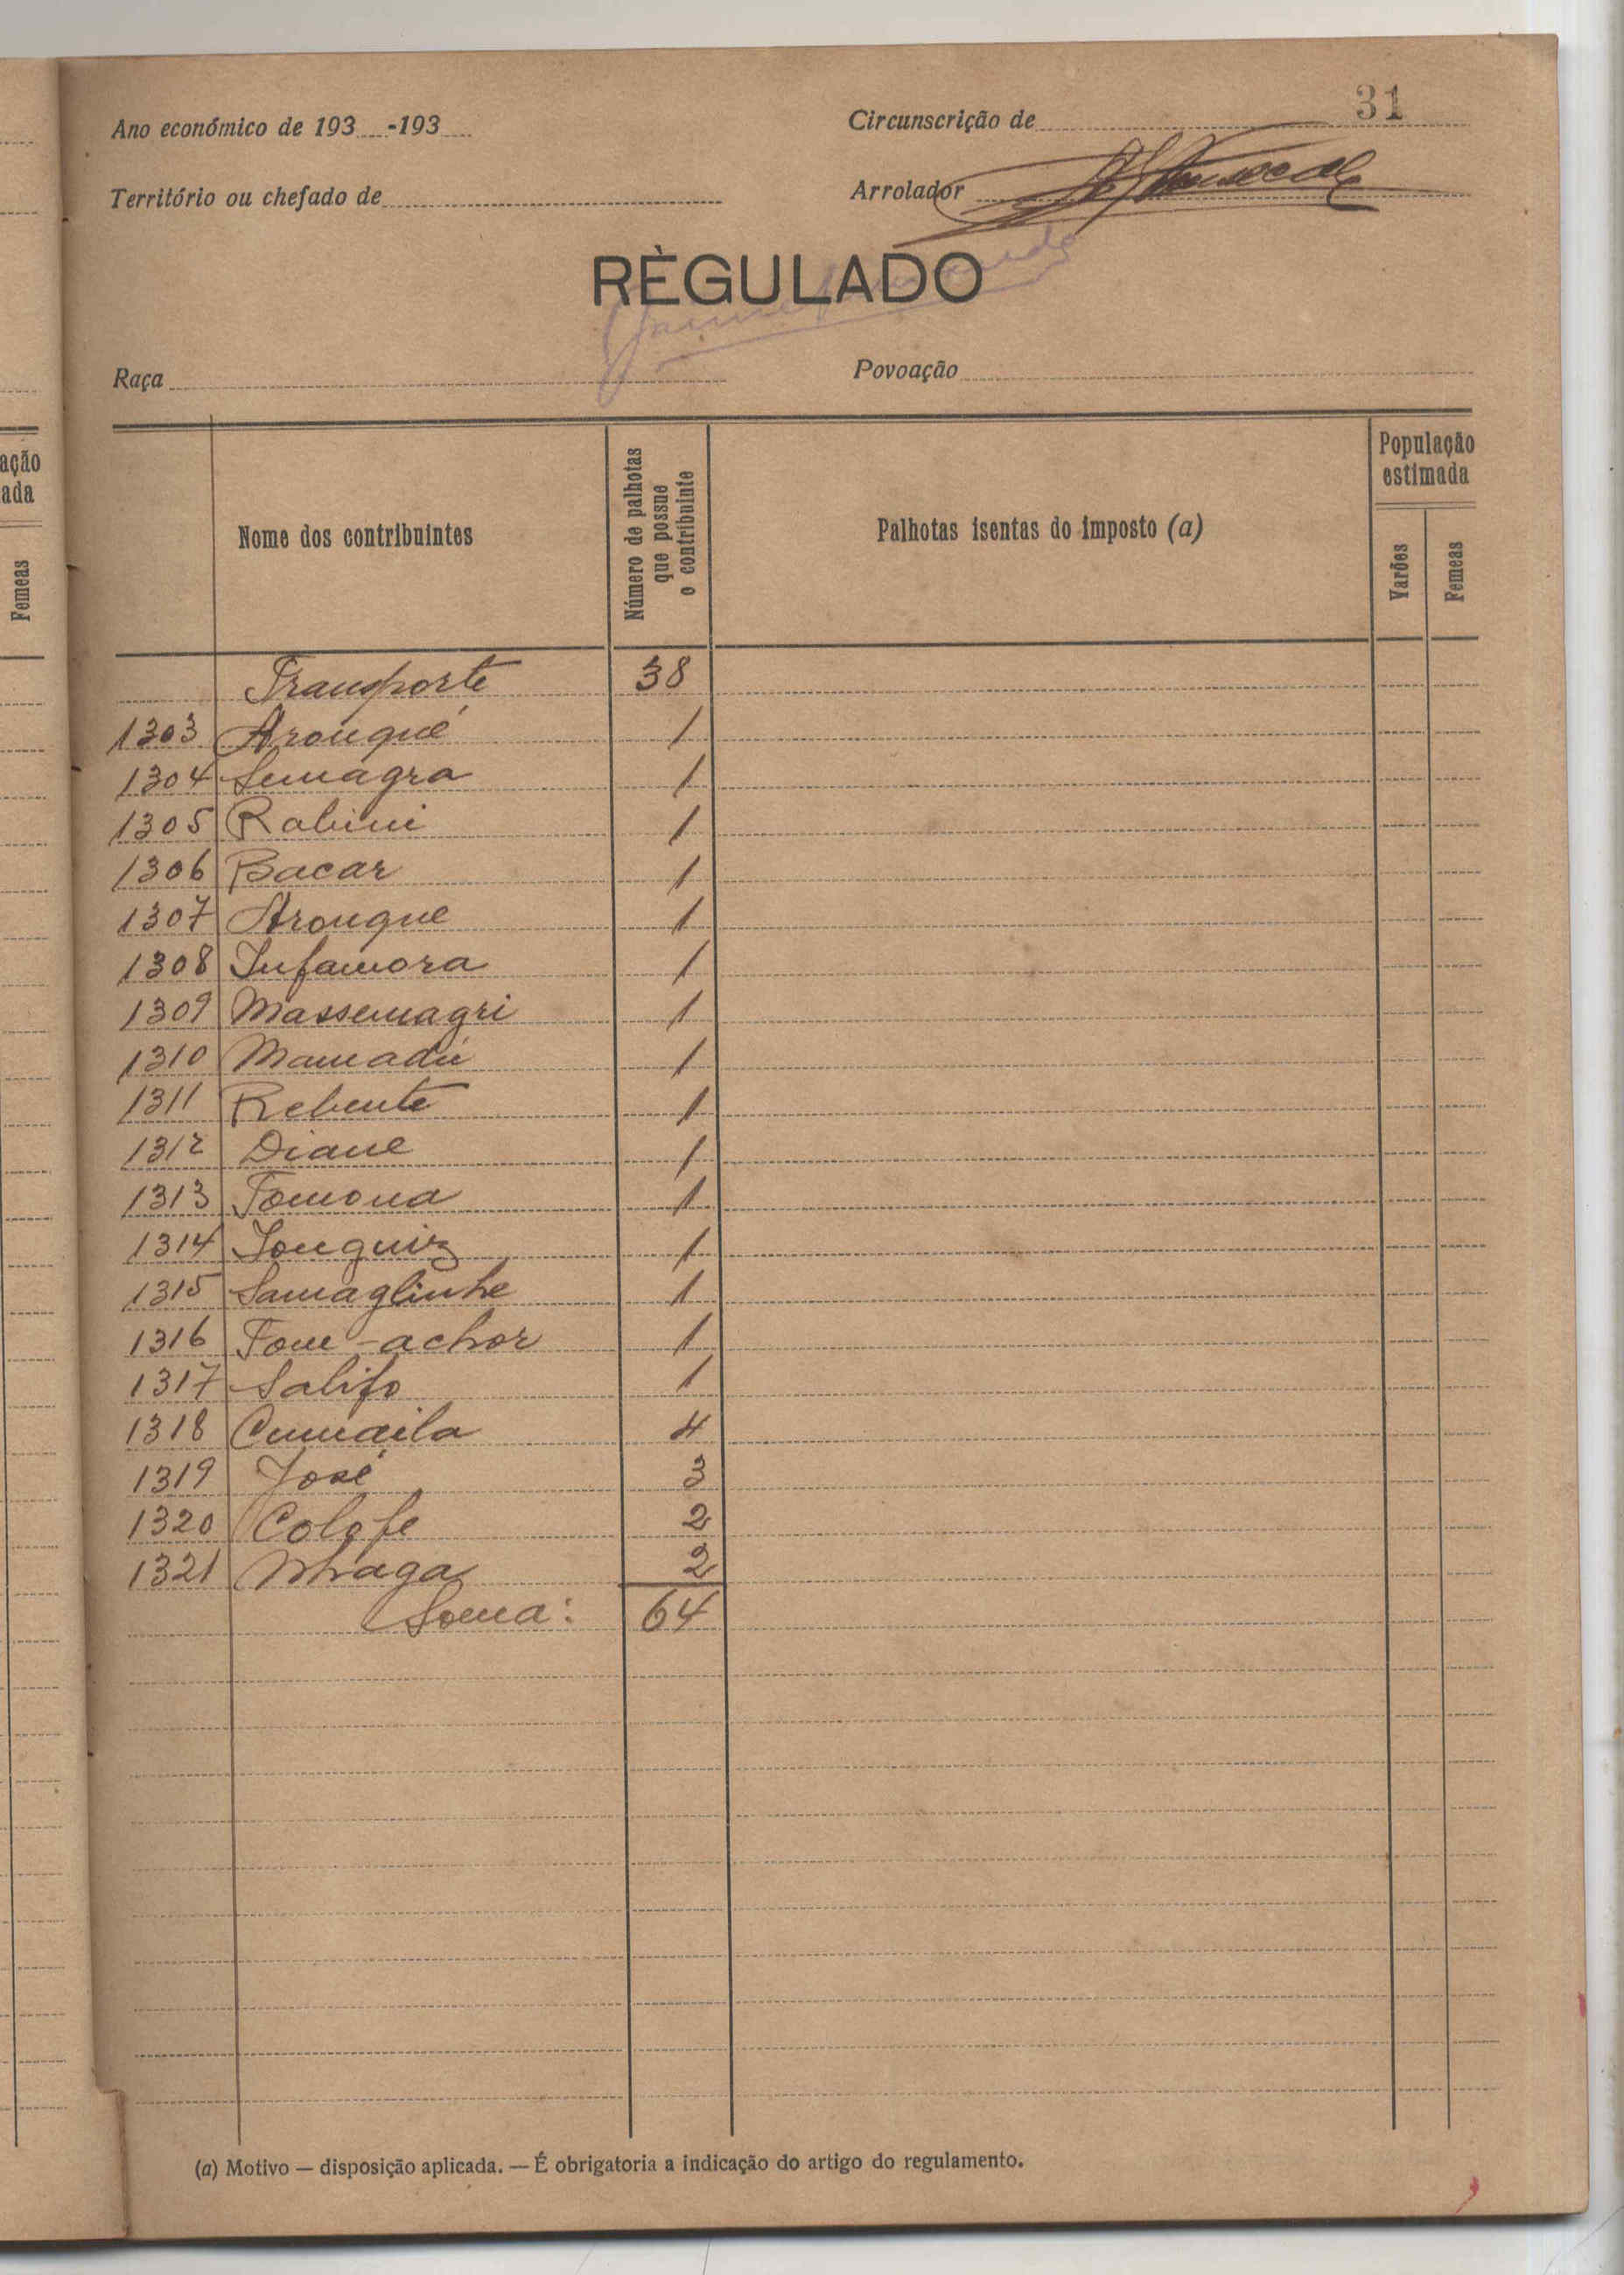 31
Ano económico de 193 -193
Circunscrição de
Território ou chefado de
Arrolador
RÈGULADO
Raça
Povoação
ação
ada
Femeas
Nome dos contribuintes
Número de palhotas que possue o contribuinte
Palhotas isentas do imposto (a)
População estimada
Varões
Femeas
Transporte 38
1303 Arouqué 1
1304 Semagra 1
1305 Rabini 1
1306 Bacar 1
1307 Arouque 1
1308 Infamora 1
1309 Massemagri 1
1310 Mamadú 1
1311 Rebente 1
1312 Diane 1
1313 Fomona 1
1314 1
1315 Samaglinhe 1
1316 Fom-achor 1
1317 Salifo 1
1318 Cumaila 4
1319 José 3
1320 Colofe 2
1321 2
Soma: 64
(a) Motivo — disposição aplicada. — É obrigatoria a indicação do artigo do regulamento.